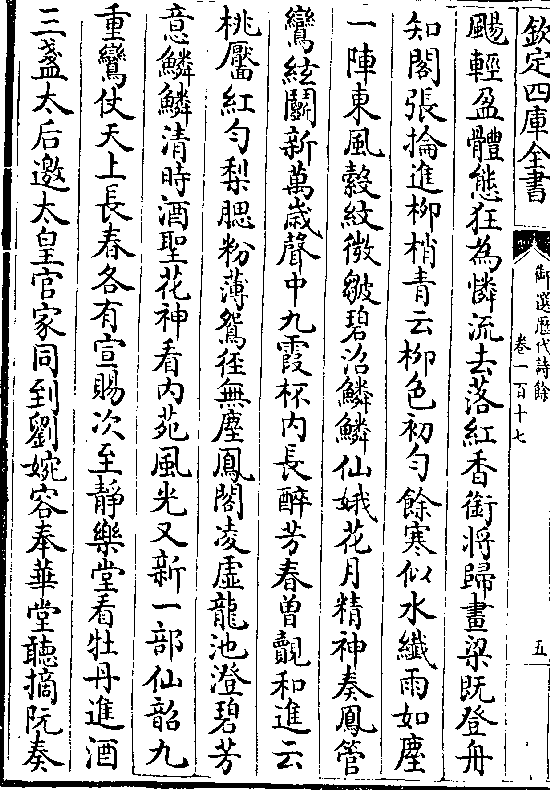 欽定四庫全書
御選歷代詩餘
卷一百十七
五
颺輕盈體態狂為憐流去落紅香銜將歸畫梁既登舟
知閣張掄進柳梢青云柳色初勻餘寒似水纖雨如塵
一陣東風縠紋微皺碧沼鱗鱗仙娥花月精神奏鳳管
鸞絃鬬新萬歲聲中九霞杯内長醉芳春曽覿和進云
桃靨紅勻梨腮粉薄鴛徑無塵鳳閣凌虛龍池澄碧芳
意鱗鱗清時酒聖花神看内苑風光又新一部仙韶九
重鸞仗天上長春各有宣賜次至靜樂堂看牡丹進酒
三盞太后邀太皇官家同到劉婉容奉華堂聽摘阮奏